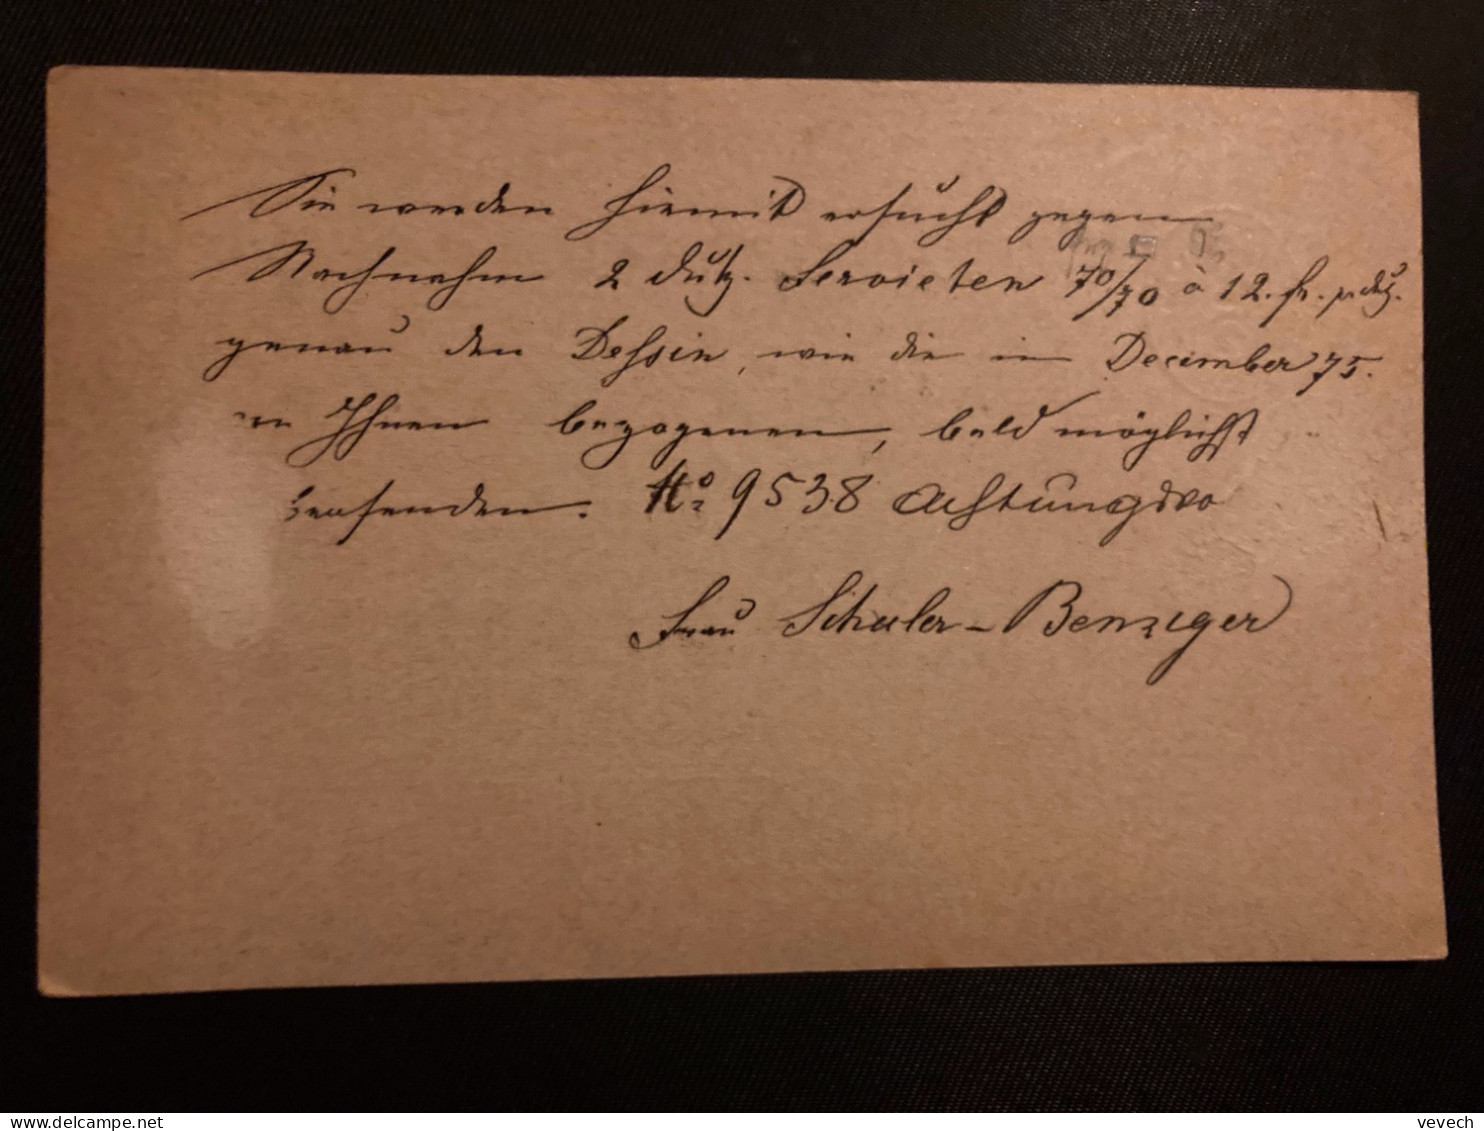 Sie werden hiermit ersucht gegen
Nachnahm 2 Dutz. Servieten 70/70 à 12. fr. p. Dutz.
genau den Dessin, wie die im December 75.
Ihnen bezogenen, bald möglichst
senden. No 9538 Achtungsvo
Frau Schuler-Benziger
vevech
www.delcampe.net